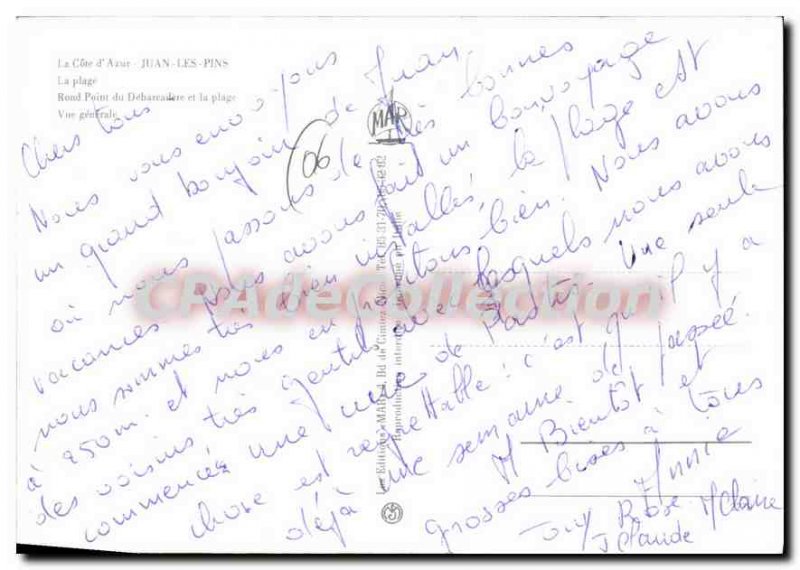 La Côte d'Azur - JUAN-LES-PINS
La plage
Rond Point du Débarcadère et la plage
Vue générale
MAR
06
Chers tous
Nous vous envoyons
un grand bonjour de Juan.
où nous passons de très bonnes
vacances. Nous avons fait un bon voyage
nous sommes très bien installés, la plage est
à 250m. et nous en profitons bien. Nous avons
des voisins très gentils avec lesquels nous avons
commencé une de Pastis. Une seule
chose est regrettable : c'est qu'il y a
déjà une semaine de passée.
A Bientôt et
grosses bises à tous
Annie
Tony Rose M Claire
J Claude
Les Editions «MAR», Bd de Cimiez, Nice, Tél.
Reproduction interdite
CPAdeCollection